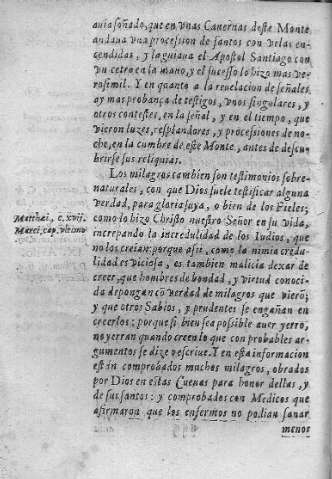 auia soñado, que en vnas Cauernas deste Monte
andaua vna procession de santos con velas en-
cendidas, y la guiaua el Apostol Santiago con
vn cetro en la mano, y el sucesso lo hizo mas ve-
rosimil. Y en quanto a la reuelacion de señales,
ay mas probança de testigos, vnos singulares, y
otros contestes, en la señal, y en el tiempo, que
vieron luzes, resplandores, y processiones de no-
che, en la cumbre de este Monte, antes de descu-
brirse sus reliquias.
Los milagros tambien son testimonios sobre-
naturales, con que Dios suele testificar alguna
verdad, para gloria suya, o bien de los Fieles;
Matthæi, c. xvij.
Marci, cap. vltimo
como lo hizo Christo nuestro Señor en su vida,
increpando la incredulidad de los Iudios, que
no los creian: porque assi, como la nimia credu-
lidad es viciosa, es tambien malicia dexar de
creer, que hombres de bondad, y virtud conoci-
da depongan cō verdad de milagros que vierō;
y que otros Sabios, y prudentes se engañan en
creerlos; porque si bien sea possible auer yerro,
no yerran quando creen lo que con probables ar-
gumentos se dize
Y en esta informacion
están comprobados muchos milagros, obrados
por Dios en estas Cueuas para honor dellas, y
de sus santos: y comprobados con Medicos que
afirmaron que los enfermos no podian sanar
menos